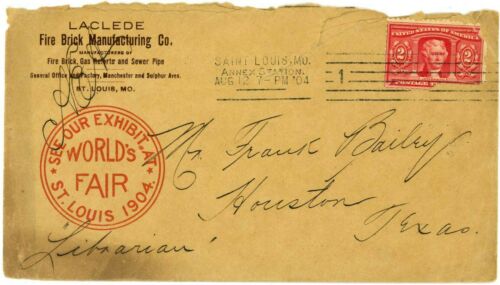 LACLEDE
Fire Brick Manufacturing Co.
MANUFACTURERS OF
Fire Brick, Gas Retorts and Sewer Pipe
General Office and Factory, Manchester and Sulphur Aves.
ST. LOUIS, MO.
SAINT LOUIS, MO.
ANNEX STATION.
AUG 12 7-PM '04
1
UNITED STATES OF AMERICA
2 2
POSTAGE
SEE OUR EXHIBIT, AT
WORLD'S
FAIR
ST. LOUIS 1904.
Mr. Frank Bailey
Houston
Texas.
Librarian